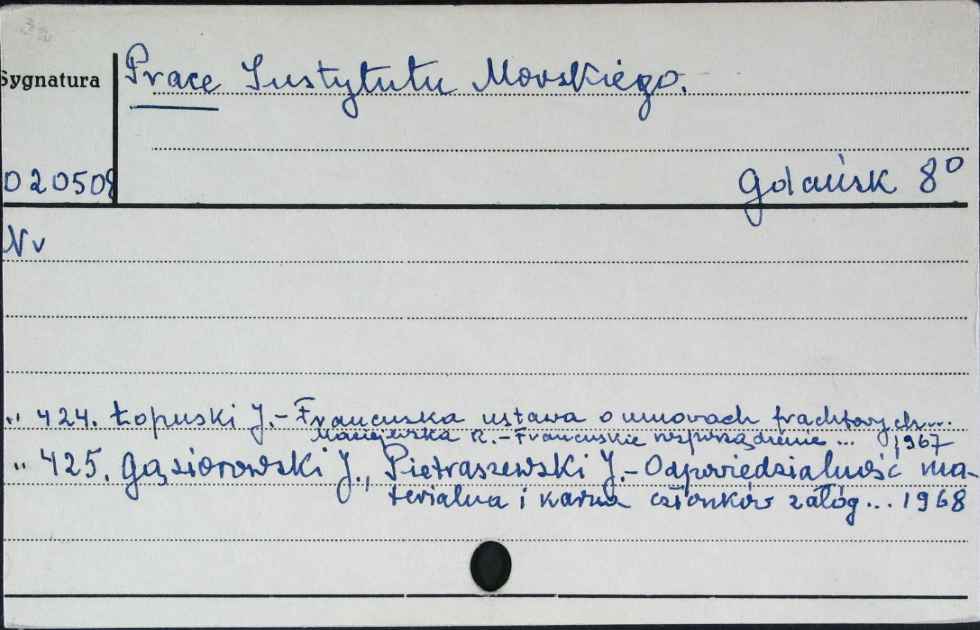 Sygnatura
Prace Instytutu Morskiego.
020508
Gdańsk 8°
Nr
" 424. Łopuski J.- Francuska ustawa o umowach frachtowych...
Maciejewska R. - Francuskie rozporządzenie ... , 1967
" 425. Gąsiorowski J., Pietraszewski J. - Odpowiedzialność ma-
terialna i karna członków załóg... 1968